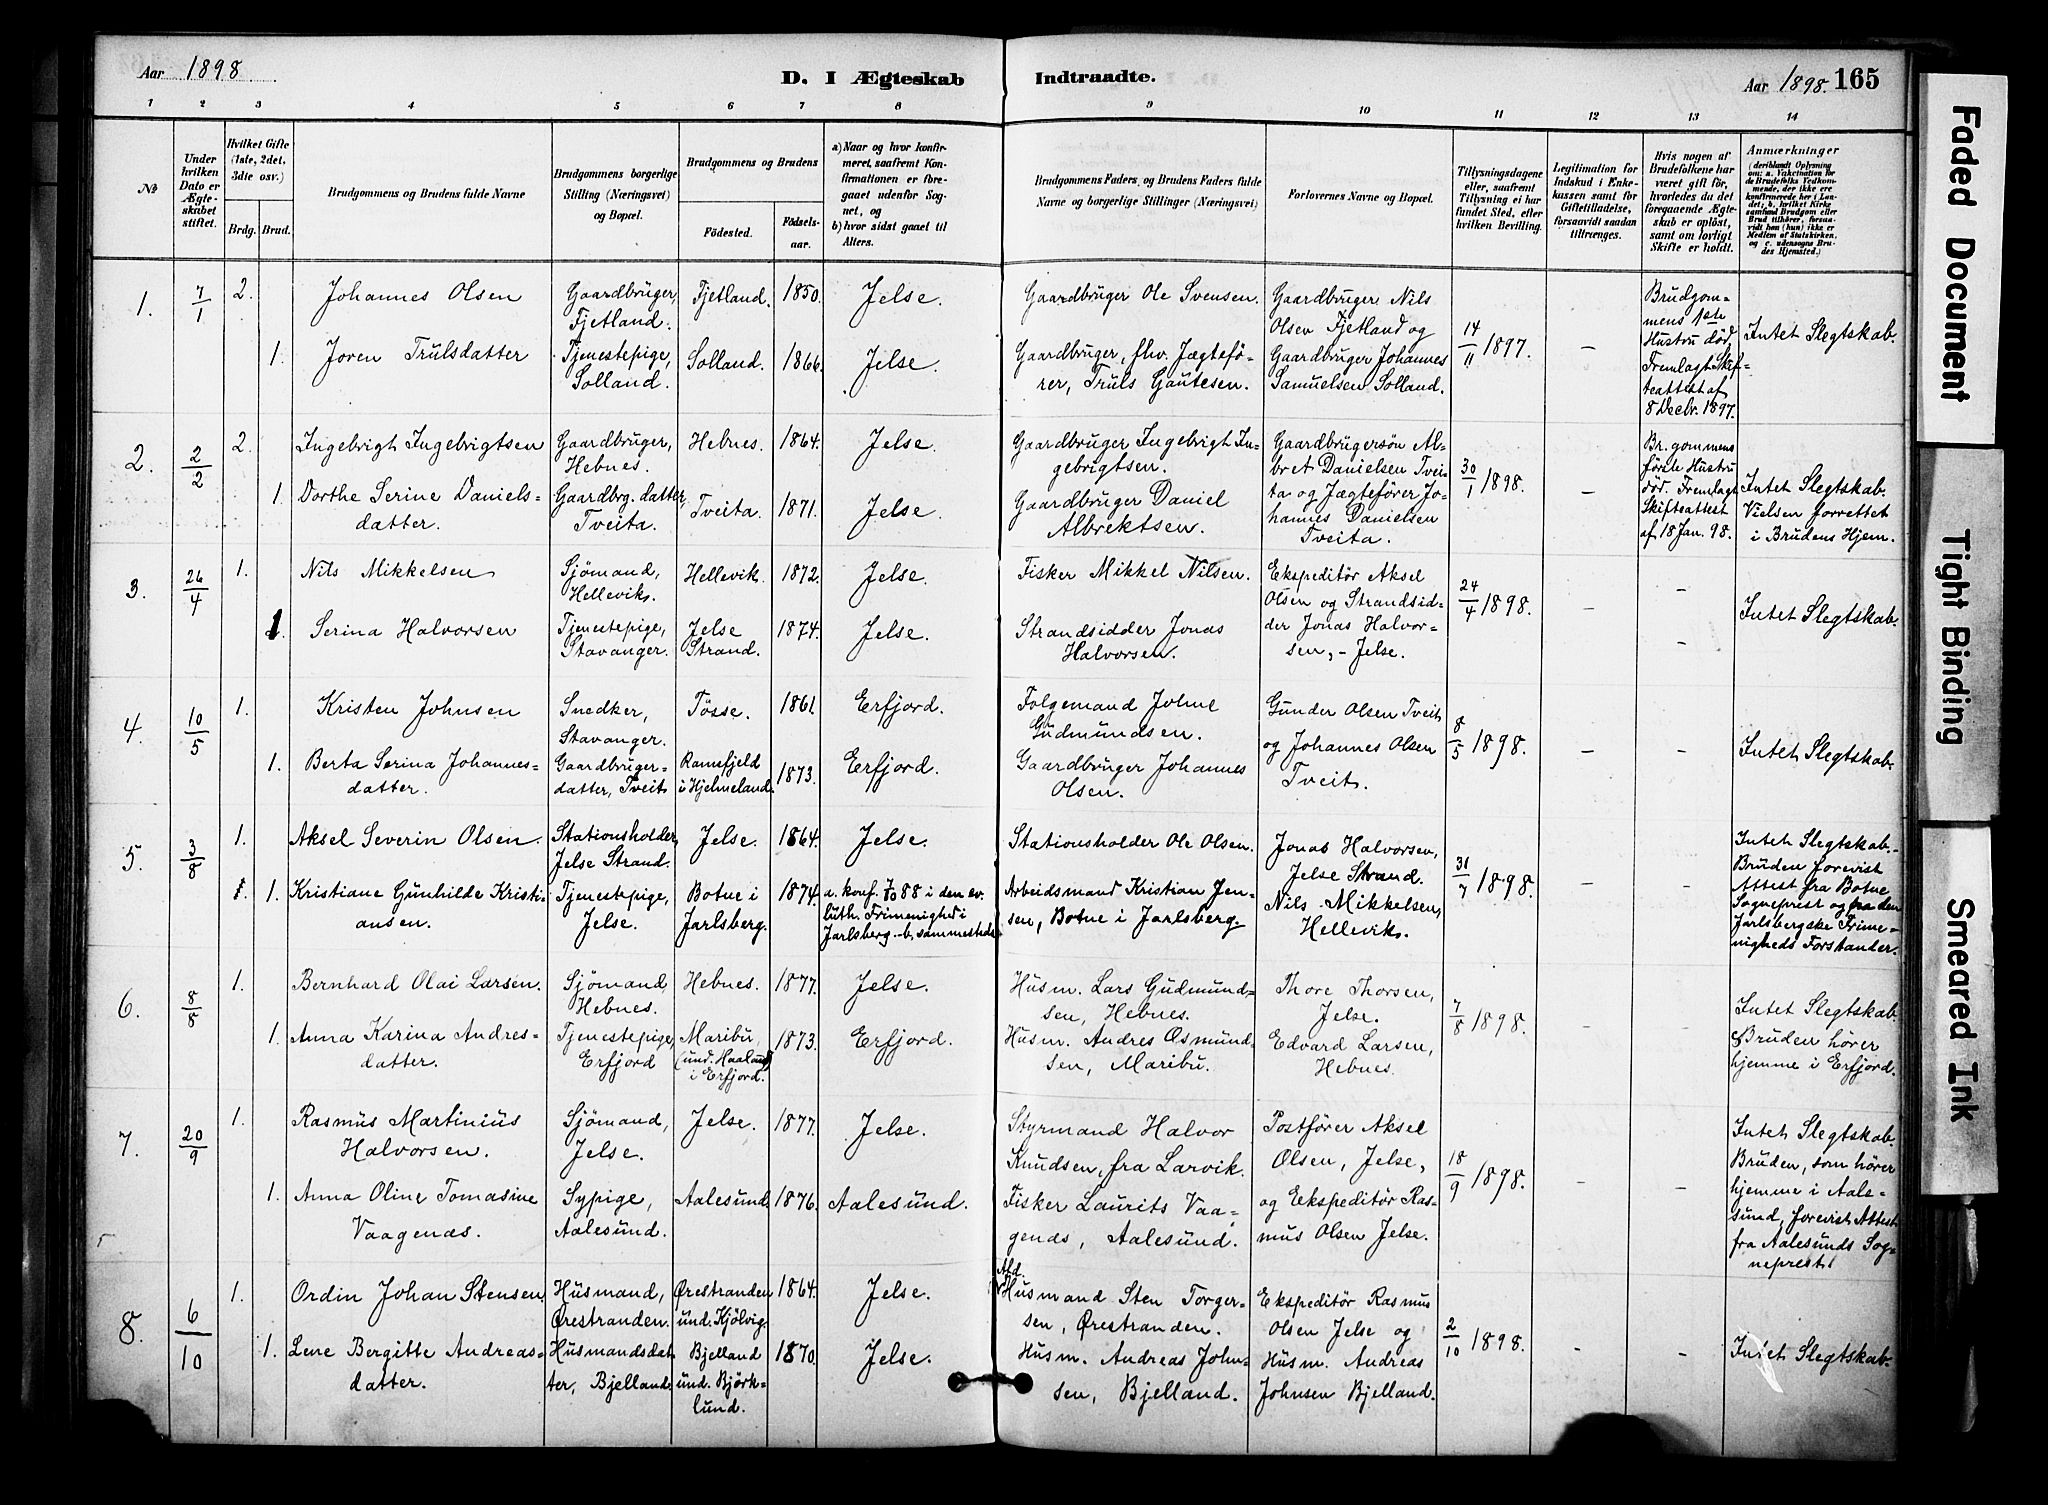 Aar 1898. D. I Ægteskab Indtraadte. Aar 1898. 165
1 2 3 4 5 6 7 8 9 10 11 12 13 14
No
Under hvilken Dato er Ægteskabet stiftet.
Hvilket Gifte (1ste, 2det, 3die osv.)
Brdg. Brud.
Brudgommens og Brudens fulde Navne
Brudgommens borgerlige Stilling (Næringsvei) og Bopæl.
Brudgommens og Brudens
Födested.
Födselsaar.
a) Naar og hvor konfirmeret, saafremt Konfirmationen er foregaaet udenfor Sognet, og
b) hvor sidst gaaet til Alters.
Brudgommens Faders, og Brudens Faders fulde Navne og borgerlige Stillinger (Næringsvei)
Forlovernes Navne og Bopæl.
Tillysningsdagene eller, saafremt Tillysning ei har fundet Sted, efter hvilken Bevilling.
Legitimation for Indskud i Enkekassen samt for Giftetilladelse, forsaavidt saadan tiltrænges.
Hvis nogen af Brudefolkene har været gift før, hvorledes da det foregaaende Ægteskab er opløst, samt om lovligt Skifte er holdt.
Anmærkninger
(deriblandt Oplysning om: a. Vakcination for de Brudefolks Vedkommende, der ikke ere konfirmerede her i Landet; b. hvilket Kirkesamfund Brudgom eller Brud tilhörer, forsaavidt han (hun) ikke er Medlem af Statskirken, og c. udensogns Brudes Hjemsted.)
1. 7/1 2. Johannes Olsen Gaardbruger, Fjetland. Fjetland. 1850. Jelse. Gaardbruger Ole Svensen. Gaardbruger Nils Olsen Fjetland og Gaardbruger Johannes Samuelsen Solland. 14/11 1897. – Brudgommens 1ste Hustru død, Fremlagt Skifteattest af 8 Decbr. 1897. Intet Slegtskab.
1. Joren Trulsdatter Tjenestepige, Solland. Solland. 1866. Jelse. Gaardbruger, fhv. Jægtefører, Truls Gautesen.
2. 2/2 2. Ingebrigt Ingebrigtsen Gaardbruger, Hebnes. Hebnes. 1864. Jelse. Gaardbruger Ingebrigt Ingebrigtsen. Gaardbrugersön Albret Danielsen Tveita og Jægtefører Johannes Danielsen Tveita. 30/1 1898. – Br. gommens første Hustru död. Fremlagt Skiftsattest af 18 Jan. 98. Intet Slegtskab. Vielsen forrettet i Brudens Hjem.
1. Dorthe Serine Danielsdatter. Gaardbrg. datter, Tveita. Tveita. 1871. Jelse. Gaardbruger Daniel Albrektsen.
3. 26/4 1. Nils Mikkelsen Sjömand, Hellevik. Hellevik. 1872. Jelse. Fisker Mikkel Nilsen. Ekspeditör Aksel Olsen og Strandsidder Jonas Halvorsen, – Jelse. 24/4 1898. – – Intet Slegtskab.
1. Serina Halvorsen Tjenestepige, Stavanger. Jelse Strand. 1874. Jelse. Strandsidder Jonas Halvorsen. –
4. 10/5 1. Kristen Johnsen Snedker, Stavanger. Tösse. 1861. Erfjord. Folgemand Johne Gudmundsen. Gunder Olsen Tveit og Johannes Olsen Tveit. 8/5 1898. – – Intet Slegtskab.
1. Berta Serina Johannesdatter. Gaardbrugerdatter, Tveit Ramsfjeld i Hjelmeland. 1873. Erfjord. Gaardbruger Johannes Olsen.
5. 3/8 1. Aksel Severin Olsen. Stationsholder, Jelse Strand. Jelse. 1864. Jelse. Stationsholder Ole Olsen. Jonas Halvorsen, Jelse Strand. Nils Mikkelsen, Hellevik. 31/7 1898. – – Intet Slegtskab. Bruden forevist Attest fra Botne Sogneprest og fra den Jarlsbergske Frimenigheds Forstander.
1. Kristiane Gunhilde Kristiansen. Tjenestepige, Jelse. Botne i Jarlsberg. 1874. a. konf. 88 i den ev. luth. Frimenighed i Jarlsberg. – b. sammesteds. Arbeidsmand Kristian Jensen, Botne i Jarlsberg.
6. 8/8 1. Bernhard Olai Larsen. Sjömand, Hebnes. Hebnes. 1877. Jelse. Husm. Lars Gudmundsen, Hebnes. Thore Thorsen, Jelse. Edvard Larsen, Hebnes. 7/8 1898. – – Intet Slegtskab. Bruden hörer hjemme i Erfjord.
1. Anna Karina Andresdatter. Tjenestepige, Erfjord Maribu, (und. Haaland) i Erfjord. 1873. Erfjord. Husm. Andres Osmundsen, Maribu.
7. 20/9 1. Rasmus Martinius Halvorsen. Sjömand, Jelse. Jelse. 1877. Jelse. Styrmand Halvor Knudsen, fra Larvik. Postförer Aksel Olsen, Jelse, og Eekspeditör Rasmus Olsen Jelse. 18/9 1898. – – Intet Slegtskab. Bruden, som hörer hjemme i Aalesund, forevist Attest fra Aalesunds Sogneprest.
1. Anna Oline Tomasine Vaagenæs. Sypige, Aalesund. Aalesund 1876. Aalesund. Fisker Laurits Vaagenæs, Aalesund.
8. 6/10 1. Ordin Johan Stensen. Husmand, Ørestranden. Ørestranden und. Kjölvig. 1864. Jelse. Afd. Husmand Sten Torgersen, Ørestranden. Ekspeditör Rasmus Olsen Jelse og Husm. Andreas Johnsen Bjelland. 2/10 1898. – – Intet Slegtskab.
1. Lene Bergitte Andreasdatter. Husmandsdatter, Bjelland Bjelland und. Björklund. 1870. Jelse. Husm. Andreas Johnsen, Bjelland.
Faded Document
Tight Binding
Smeared Ink